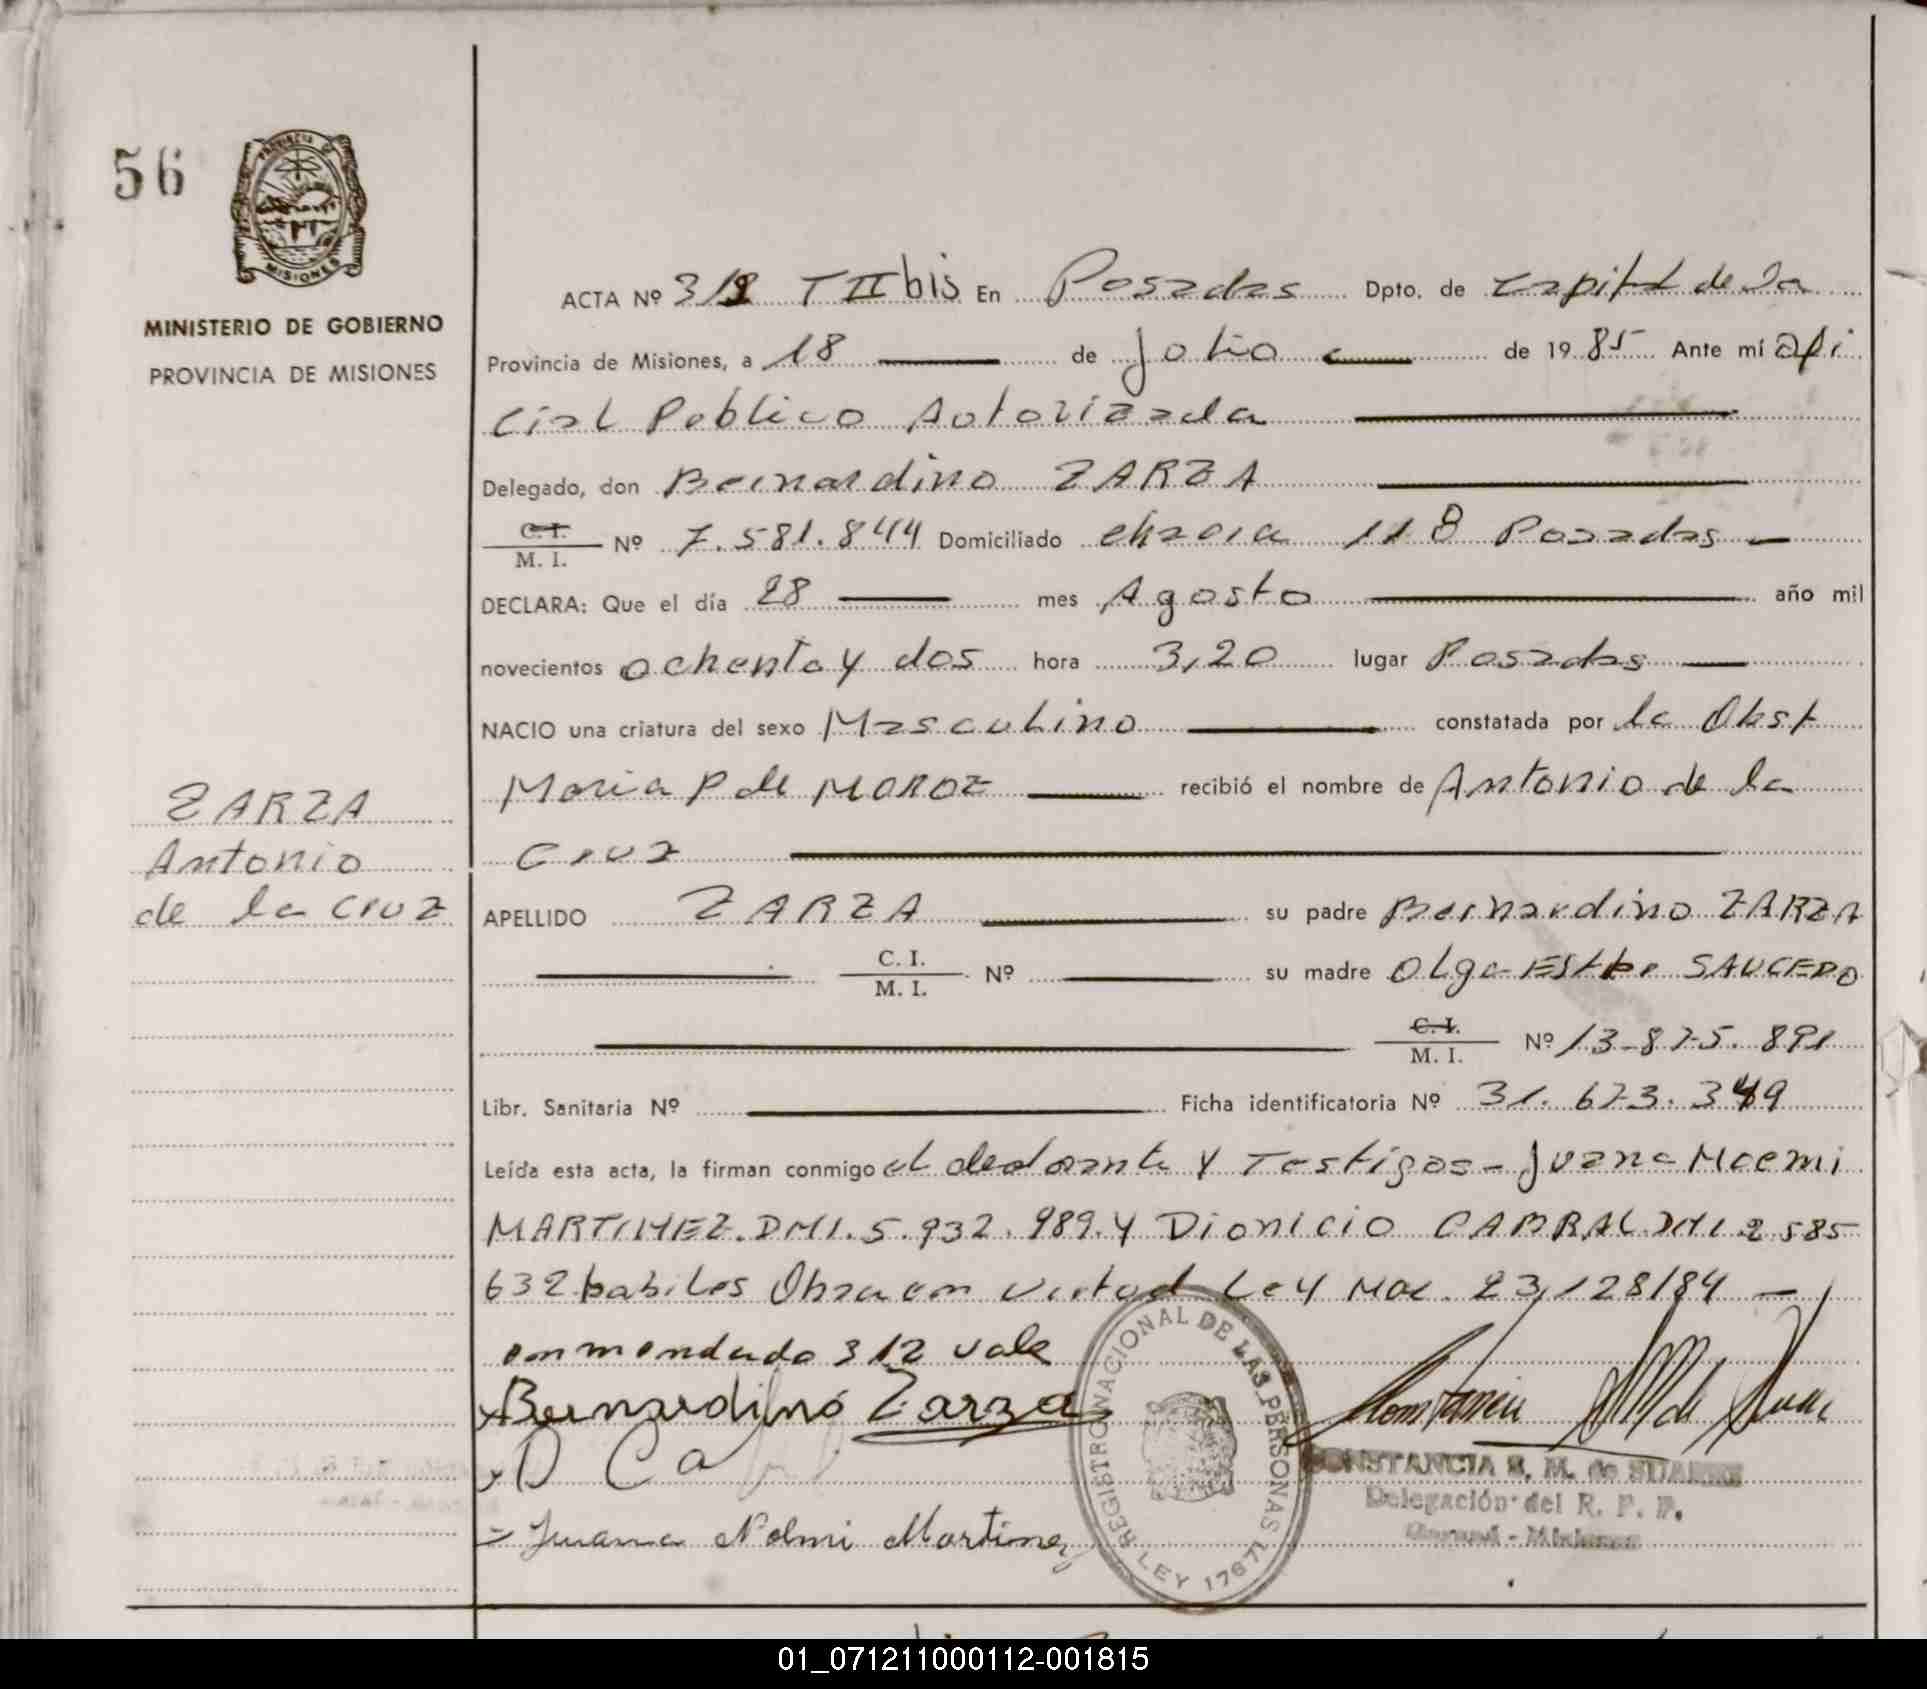 56
PROVINCIA DE
MISIONES
MINISTERIO DE GOBIERNO
PROVINCIA DE MISIONES
ACTA Nº 312 T II bis En Posadas Dpto. de Capital de la
Provincia de Misiones, a 18 de Julio de 1985 Ante mí Ofi
cial Publico Autorizada
Delegado, don Bernardino ZARZA
C. I. / M. I. Nº 7.581.844 Domiciliado chacra 118 Posadas
DECLARA: Que el día 28 mes Agosto año mil
novecientos ochenta y dos hora 3,20 lugar Posadas
NACIO una criatura del sexo Masculino constatada por la Obst
Maria P de MOROZ recibió el nombre de Antonio de la
Cruz
ZARZA
Antonio
de la Cruz
APELLIDO ZARZA su padre Bernardino ZARZA
C. I. / M. I. Nº su madre Olga Ester SAUCEDO
C. I. / M. I. Nº 13-875.891
Libr. Sanitaria Nº Ficha identificatoria Nº 31.673.349
Leída esta acta, la firman conmigo el declarante y Testigos - Juana Noemi
MARTINEZ. DNI. 5.932.989. y Dionicio CABRAL. DNI 2 585
632 habiles Obra en virtud Ley Nac. 23,128/84 -
enmendado 312 vale
Bernardino Zarza
D Ca
Juana Noemi Martinez
REGISTRO NACIONAL DE LAS PERSONAS
LEY 17671
CONSTANCIA S. M. de SUAREZ
Delegación del R. P. P.
01_071211000112-001815